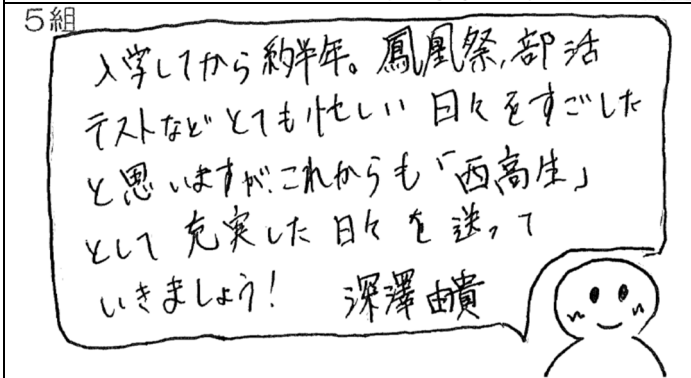 5組
入学してから約半年。鳳凰祭、部活
テストなどとても忙しい日々をすごした
と思いますが、これからも「西高生」
として充実した日々を送って
いきましょう！ 深澤由貴